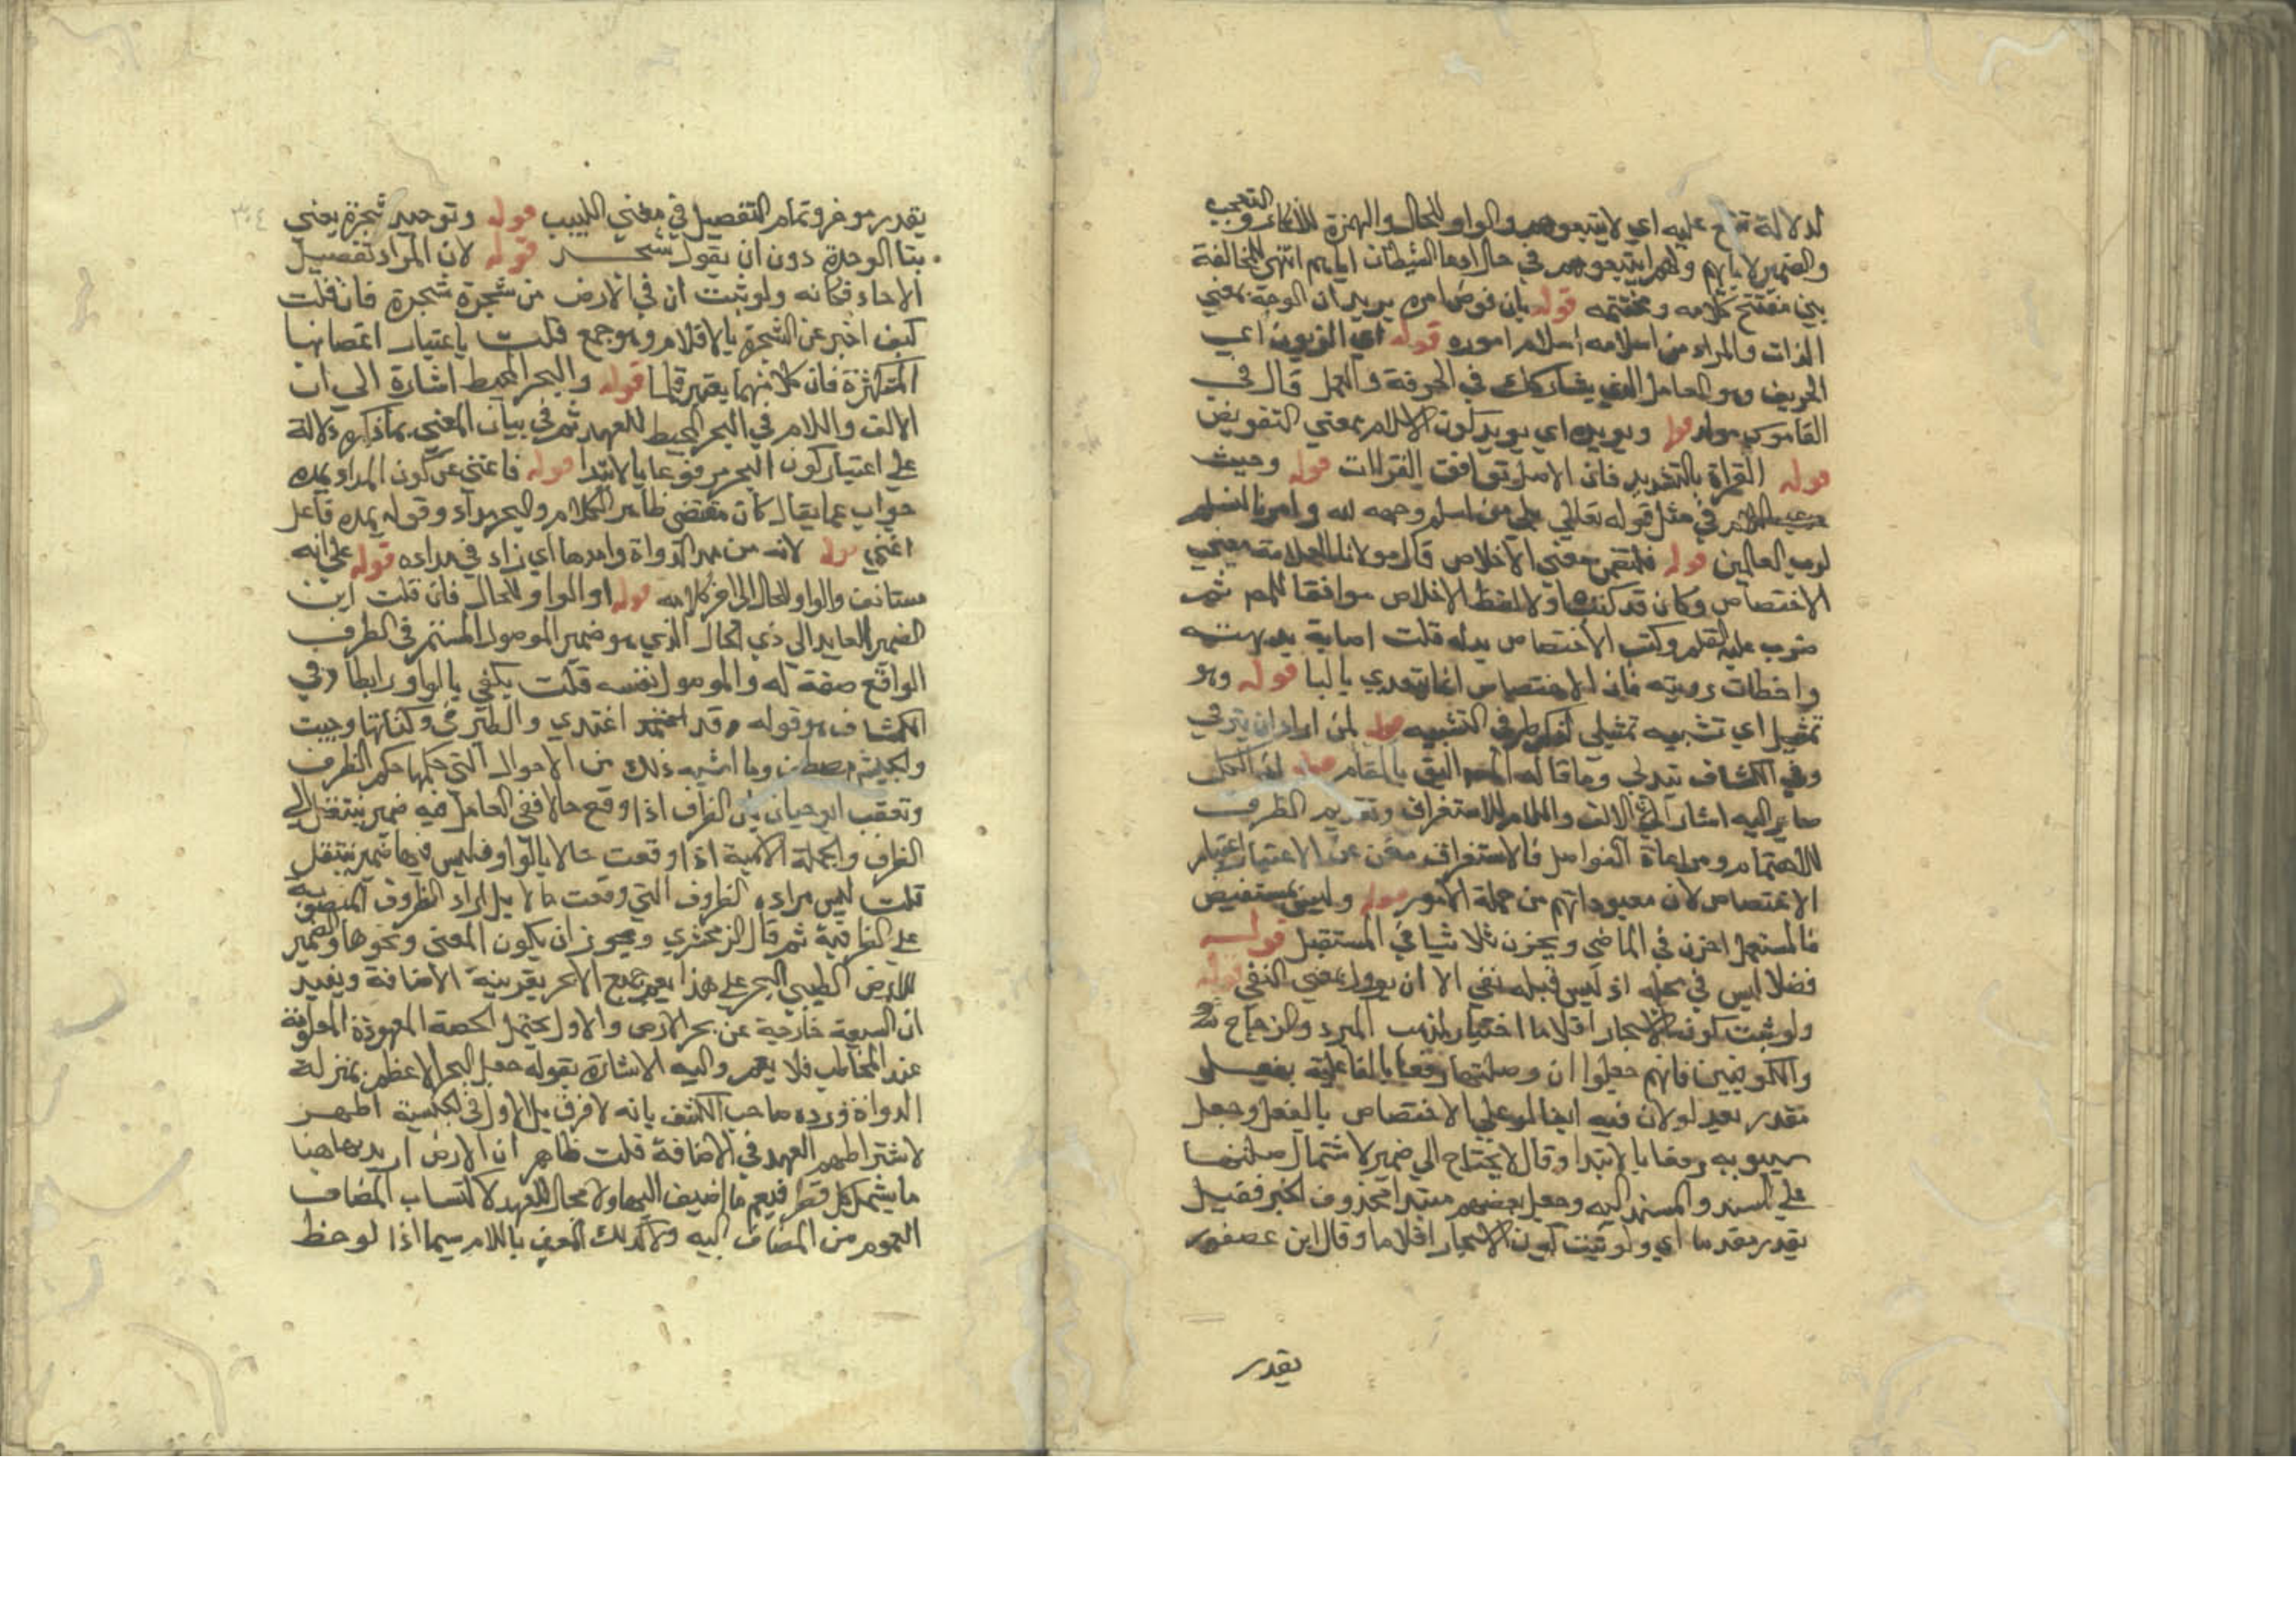 لدلالة تقع عليه اي لا يتبعوهم والواو للحال والهمزة للانكار والتعجب
والضمير لابائهم ولهم ايتبعوهم في حال دعا الشيطان اياهم انتهى للمخالفة
بين مفتتح كلامه ومختتمه قوله بان فوض امره يريد ان الوجه بمعني
الذات والمراد من اسلامه اسلام اموره قوله اي الزبون اعي
الحريف وهو العامل الذي يشاركك في الحرفة والعمل قال في
القاموس مولد قوله ويويده اي يويد كون الاسلام بمعني التفويض
قوله القراة بالتشديد فان الاصل توافق القراات قوله وحيث
عدي باللام في مثل قوله تعالي بلي من اسلم وجهه لله وامرنا لنسلم
لرب العالمين قوله فلتضمن معني الاخلاص قال مولانا العلامة يعني
الاختصاص وكان قد كتب اولا لفظ الاخلاص موافقا للمص ثم
ضرب عليه القلم وكتب الاختصاص بدله قلت اصابة بديهته
واخطات رويته فان الاختصاص انما يتعدي بالبا قوله وهو
تمثيل اي تشبيه تمثيلي لذكر طرفي التشبيه قوله لمن اراد ان يترقي
وفي الكشاف يتدلي وما قاله المص اليق بالمقام قوله اذ الكل
صاير اليه اشار الي ان الالف واللام للاستغراق وتقديم الظرف
للاهتمام ومراعاة الفواصل فالاستغراق مغن عن الاعتبار اعتبار
الاختصاص لان معبوداتهم من جملة الامور قوله وليس بمستفيض
فالمستعمل احزن في الماضي ويحزن ثلاثيا في المستقبل قوله
فضلا ليس في محله اذ ليس قبله نفي الا ان يوول بمعني النفي قوله
ولو ثبت كون الاشجار اقلاما اختيار لمذهب المبرد والزجاج
والكوفيين فانهم جعلوا ان وصلتها رفعا بالفاعلية بفعل
مقدر بعد لو لان فيه ابقا لو علي الاختصاص بالفعل وجعل
سيبويه رفعا بالابتدا وقال لا يحتاج الي ضمير لاشتمال صلتها
علي المسند والمسند اليه وجعل بعضهم مبتدا محذوف الخبر فقيل
يقدر مقدما اي ولو ثبت كون الاشجار اقلاما وقال ابن عصفور
يقدر
يقدر موخرا وتمام التفصيل في مغني اللبيب قوله وتوحيد شجرة يعني
بتا الوحدة دون ان يقول شجر قوله لان المراد تفصيل
الاحاد فكانه ولو ثبت ان في الارض من شجرة شجرة فان قلت
كيف اخبر عن الشجرة بالاقلام وهو جمع قلت باعتبار اغصانها
المتكثرة فان كلا منها يعتبر قلما قوله والبحر المحيط اشارة الي ان
الالف واللام في البحر المحيط للعهد ثم في بيان المعني بما ذكره دلالة
علي اعتبار كون البحر مرفوعا بالابتدا قوله فاغني عن كون المداد يمده
جواب عما يقال كان مقتضي ظاهر الكلام والبحر مداد وقوله يمده فاعل
اغني قوله لانه من مد الدواة وامدها اي زاد في مداده قوله علي انه
مستانف والواو للحال الي اخر كلامه قوله او الواو للحال فان قلت اين
الضمير العايد الي ذي الحال الذي هو ضمير الموصول المستتر في الظرف
الواقع صفة له والموصول نفسه قلت يكفي بالواو رابطا وفي
الكشاف هو قوله وقد اغتدي والطير في وكناتها وجيت
والجيش مصطف وما اشبه ذلك من الاحوال التي حكمها حكم الظرف
وتعقب ابو حيان بان الظرف اذا وقع حالا ففي العامل فيه ضمير ينتقل الي
الظرف والجملة الاسمية اذا وقعت حالا بالواو فليس فيها ضمير ينتقل
قلت ليس مراده الظروف التي وقعت حالا بل اراد الظروف المنصوبة
علي الظرفية ثم قال الزمخشري ويجوز ان يكون المعني ونحوها والضمير
للارض الطيبي البحر علي هذا يعم جميع الابحر بقرينة الاضافة ويفيد
ان السبعة خارجة عن بحر الارض والاول يحتمل الحصة المعهودة المعلومة
عند المخاطب فلا يعم واليه الاشارة بقوله جعل البحر الاعظم بمنزلة
الدواة ورده صاحب الكشف بانه لا فرق بل الاول في الجنسية اظهر
لاشتراطهم العهد في الاضافة قلت ظاهر ان الارض اريد بها هنا
ما يشمل كل قطر فيعم ما اضيف اليها ولا مجال للعهد لاكتساب المضاف
العموم من المضاف اليه ولا كذلك المعرف باللام سيما اذا لوحظ